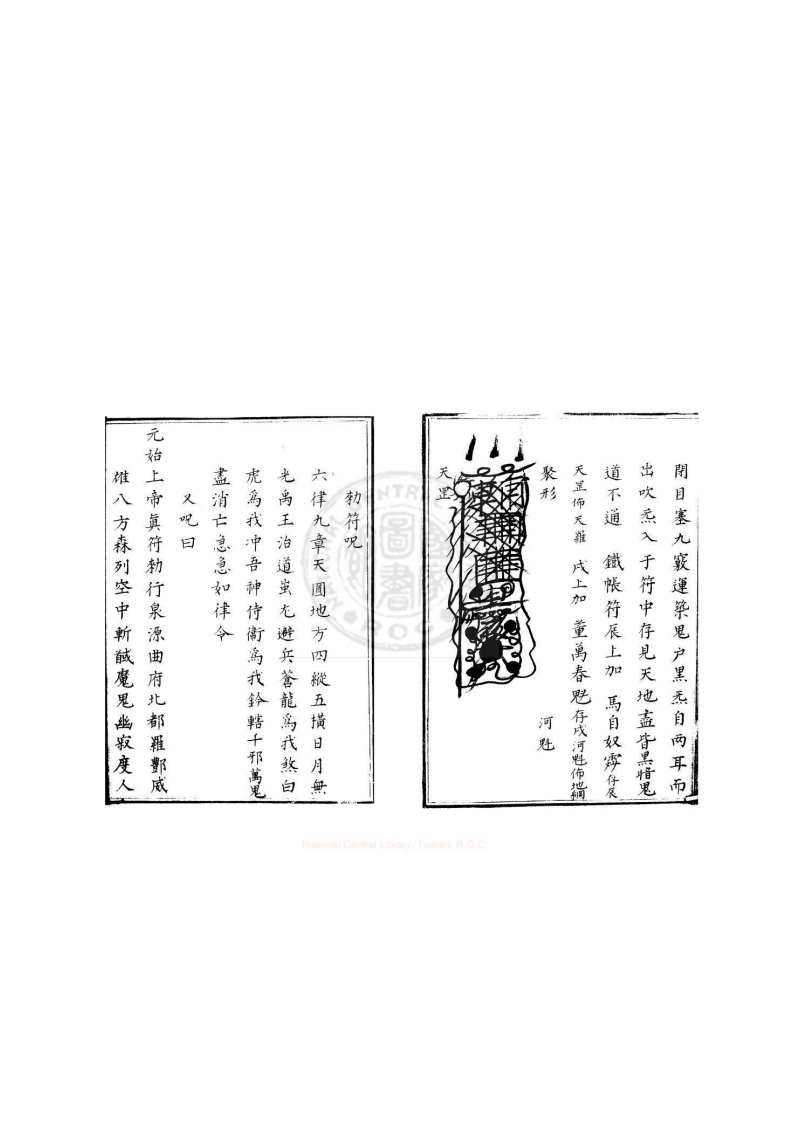 閉目塞九竅運築鬼戶黑炁自兩耳而
出吹炁入于符中存見天地盡皆黑暗鬼
道不通　鐵帳符辰上加　馬自奴雱存辰
天罡佈天羅　戌上加　董萬春魁存戌河魁佈地網
聚形　　河魁
天罡
勅符呪
六律九章天圓地方四縱五橫日月無
光禹王治道蚩尤避兵蒼龍爲我煞白
虎爲我冲吾神侍衞爲我鈐轄千邪萬鬼
盡消亡急急如律令
又呪曰
元始上帝眞符勅行泉源曲府北都羅酆威
雄八方森列空中斬馘魔鬼幽寂度人
National Central Library, Taiwan, R.O.C.